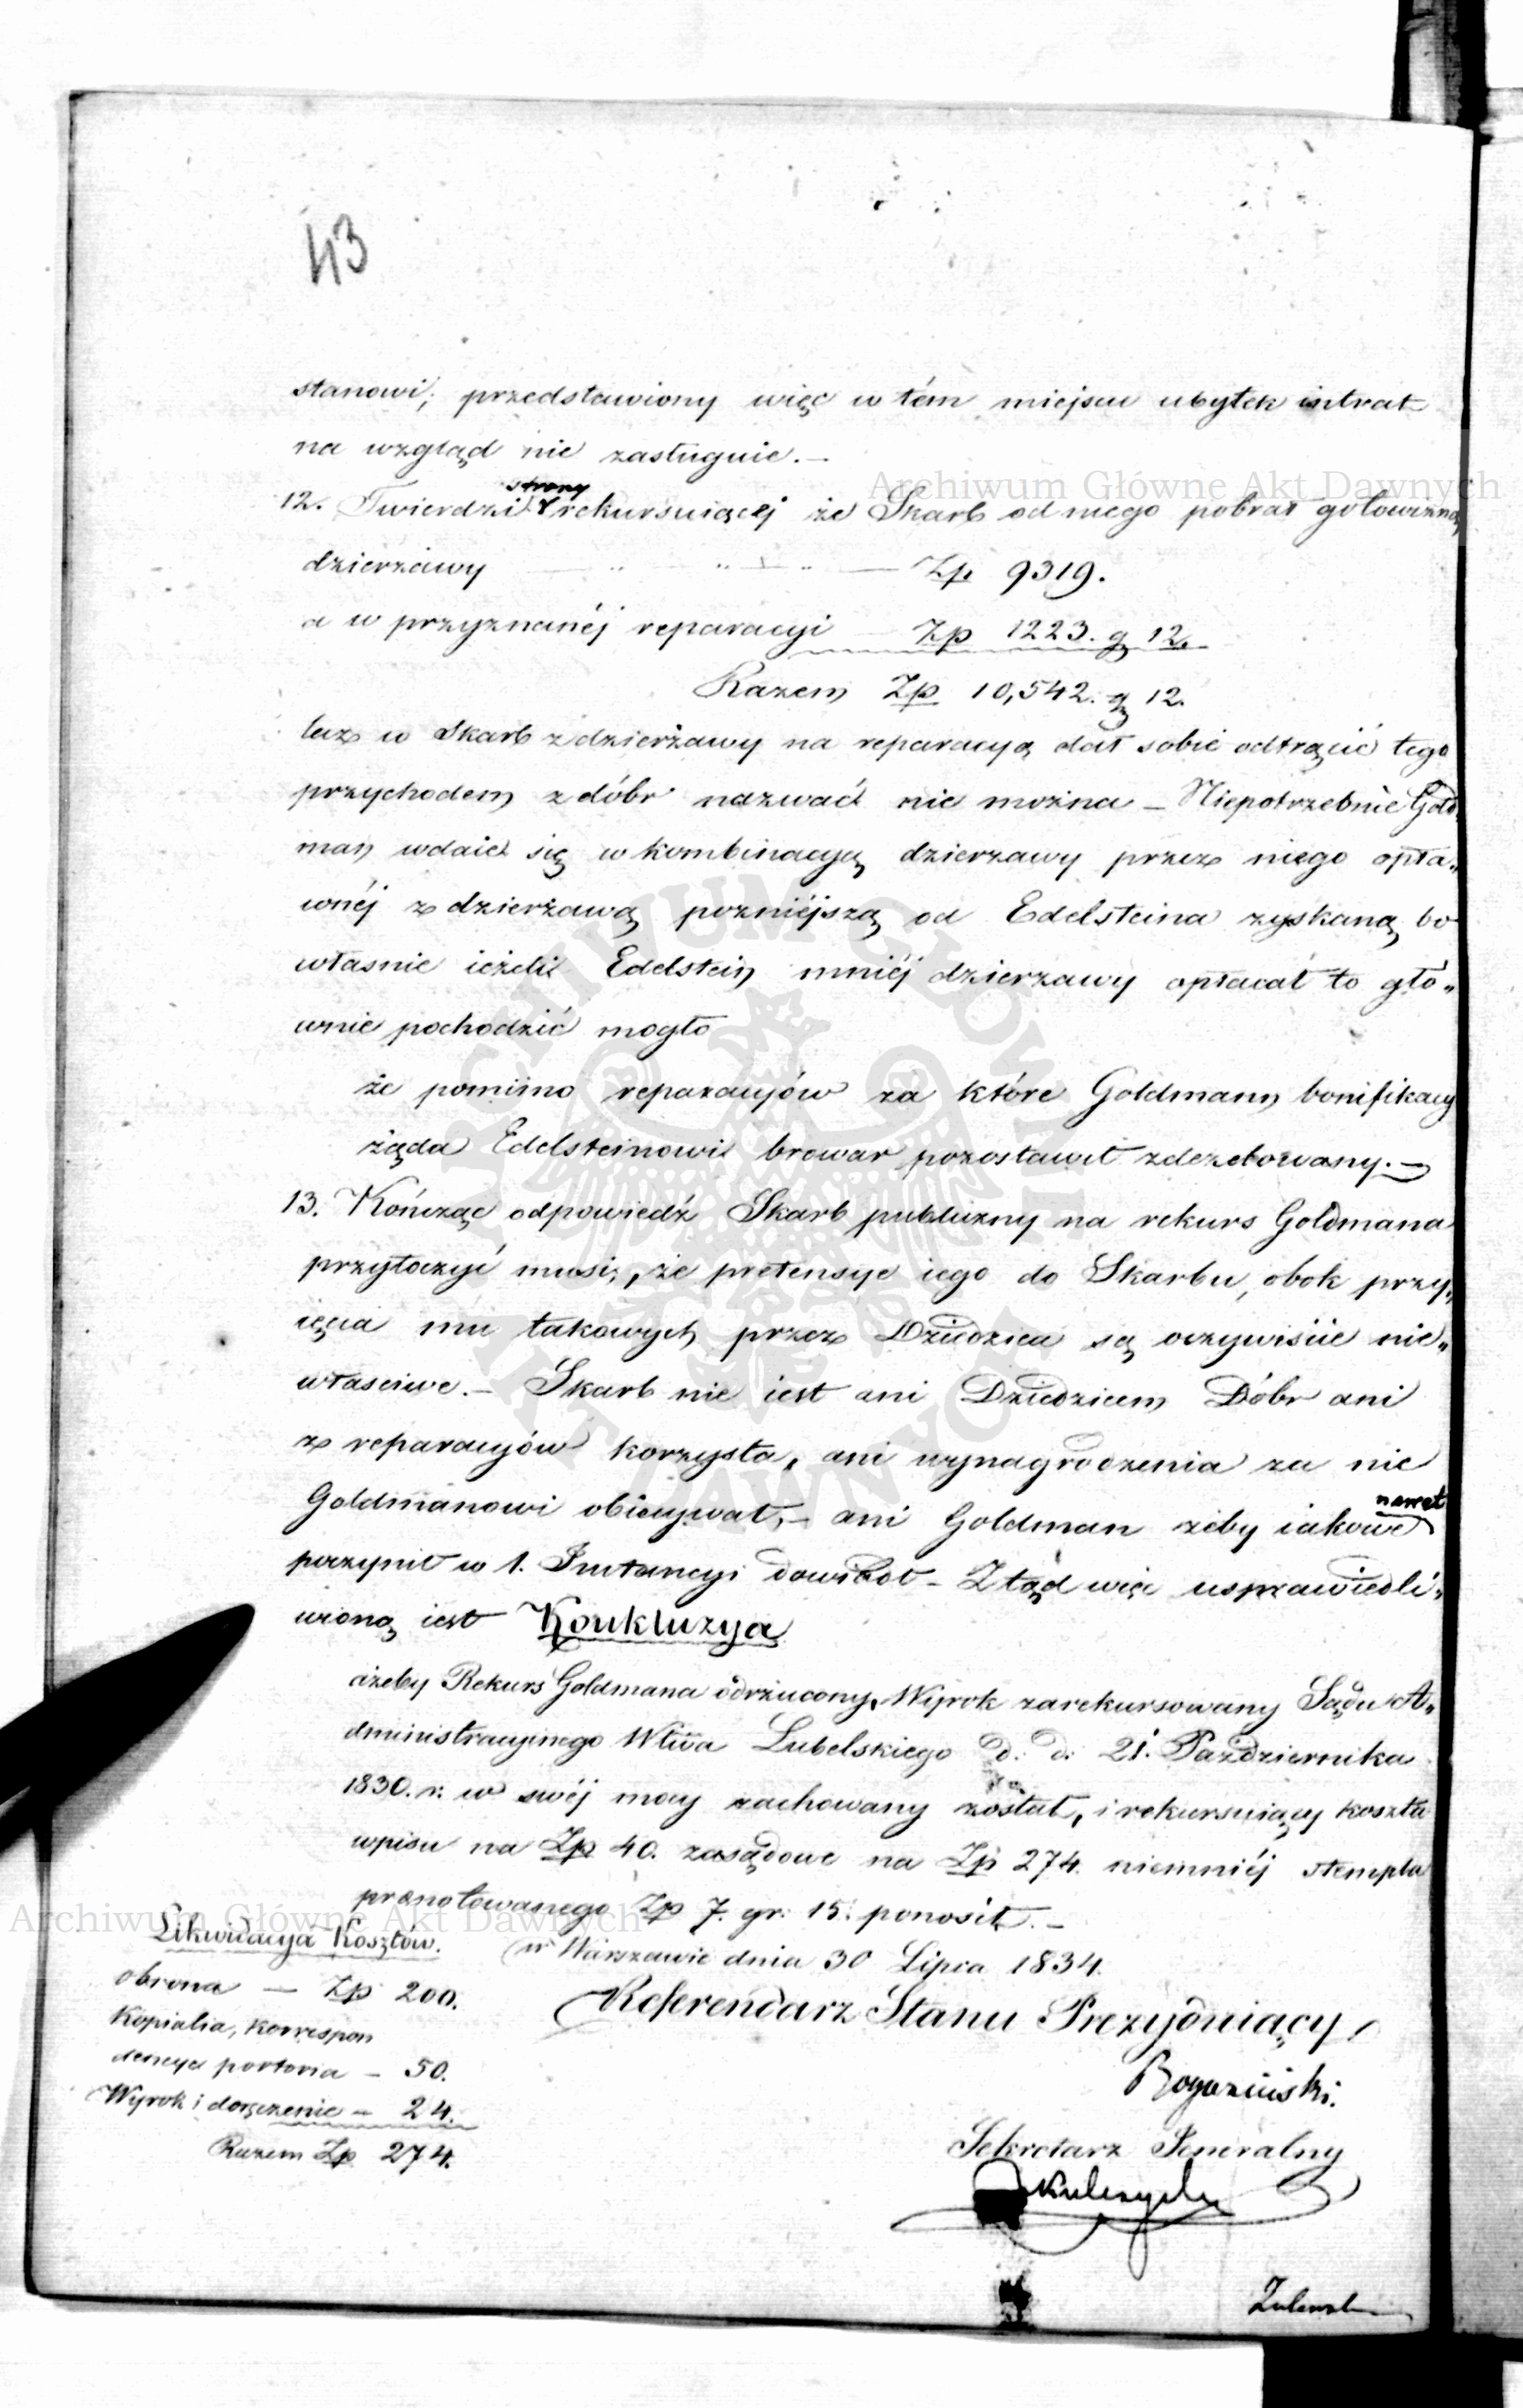 43
stanowi; przedstawiony więc w tém miejscu ubytek intrat
na wzgląd nie zasługuie. –
Archiwum Główne Akt Dawnych
strony
12. Twierdzi rekursuiącej że Skarb od niego pobrał gotowizną
dzierżawy — Zp 9319.
a w przyznanéj reparacyi — Zp 1223. g 12.
Razem Zp 10,542. g 12.
lecz w Skarb z dzierżawy na reparacyą dał sobie odtrącić tego
przychodem z dóbr nazwać nie można – Niepotrzebnie Gold
man wdaie się w kombinacyą dzierzawy przez niego opła„
wnéj z dzierżawą pozniéjszą od Edelsteina zyskaną bo
własnie ieżeli Edelstein mniéj dzierzawy opłacał to głó„
wnie pochodzić mogło
że pomimo reparacyów za które Goldmann bonifikacy
żąda Edelsteinowi browar pozostawił zdezelowany. –
13. Kończąc odpowiedź Skarb publiczny na rekurs Goldmana
przytoczyć musi, że pretensye iego do Skarbu, obok przy„
ięcia mu takowych przez Dziedzica są oczywiście nie„
własciwe. – Skarb nie iest ani Dziedzicem Dóbr ani
z reparacyów korzysta, ani wynagrodzenia za nie
Goldmanowi obiecywał, – ani Goldman żeby iakowe
nawet
poczynił w 1. Instancyi dowiódł – Ztąd więc usprawiedli„
wioną iest Konkluzya
ażeby Rekurs Goldmana odrzucony, Wyrok zarekursowany Sądu A„
dministracyinego Wtwa Lubelskiego d: d: 21. Października
1830. r. w swéj mocy zachowany został, i rekursuiący koszta
wpisu na Zp 40. zasądowe na Zp 274. niemniéj stempla
prenotowanego Zp 7. gr: 15. ponosił. –
Archiwum Główne Akt Dawnych
w Warszawie dnia 30 Lipca 1834.
Referendarz Stanu Prezyduiący
Sekretarz Jeneralny
Likwidacya Kosztów.
obrona — Zp 200.
Kopialia, korrespon
dencya portoria – 50.
Wyrok i doręczenie – 24.
Razem Zp 274.
ARCHIWUM GŁÓWNE AKT DAWNYCH